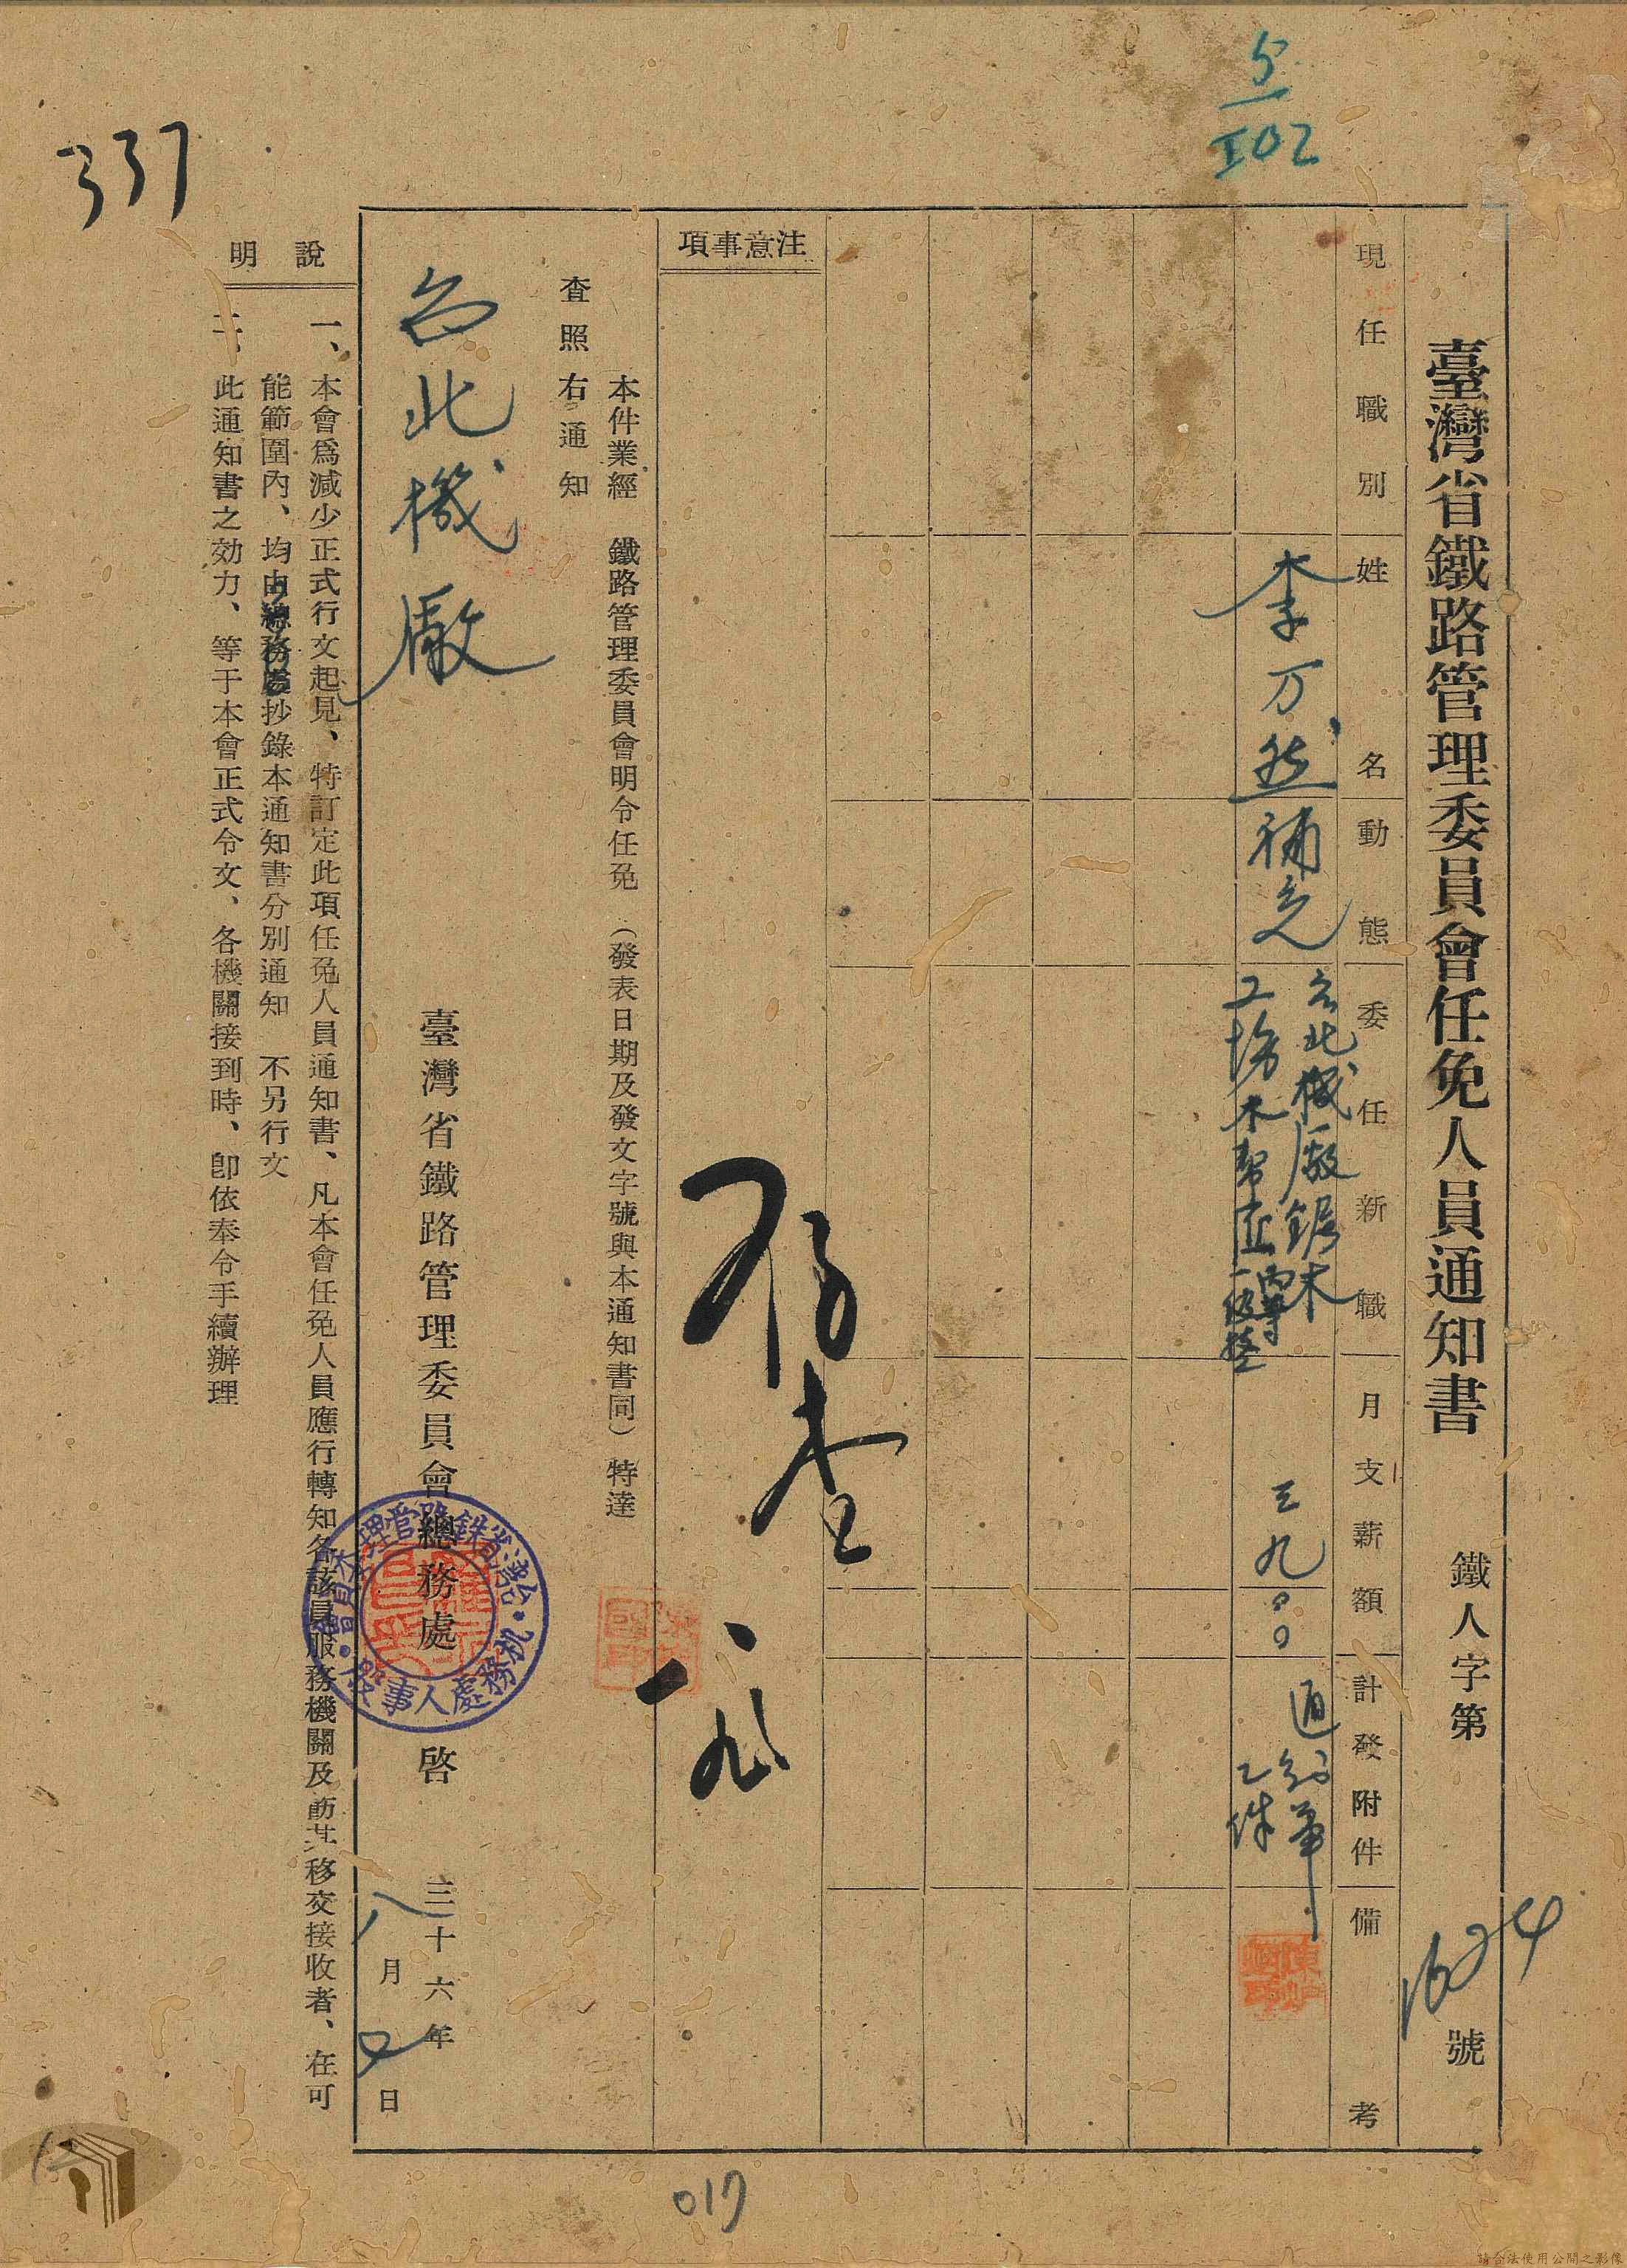 臺灣省鐵路管理委員會任免人員通知書
鐵人字第1624號
現任職別
姓名
動態
委任新職
月支薪額
計發附件
備考
李万然
補充
台北機廠鋸木
工場木幫匠
丙等
一級
三九〇〇
通知單
乙件
注意事項
存查
一八
本件業經 鐵路管理委員會明令任免 (發表日期及發文字號與本通知書同) 特達
查照右通知
台北機廠
臺灣省鐵路管理委員會總務處 啓
三十六年
八月 日
台灣省鉄路管理委員會
机務處人事
說明
一、本會爲減少正式行文起見、特訂定此項任免人員通知書、凡本會任免人員應行轉知各該員服務機關及飭其移交接收者、在可
能範圍內、均由總務處抄錄本通知書分別通知 不另行文
二、此通知書之効力、等于本會正式令文、各機關接到時、卽依奉令手續辦理
337
5
102
017
請合法使用公開之影像